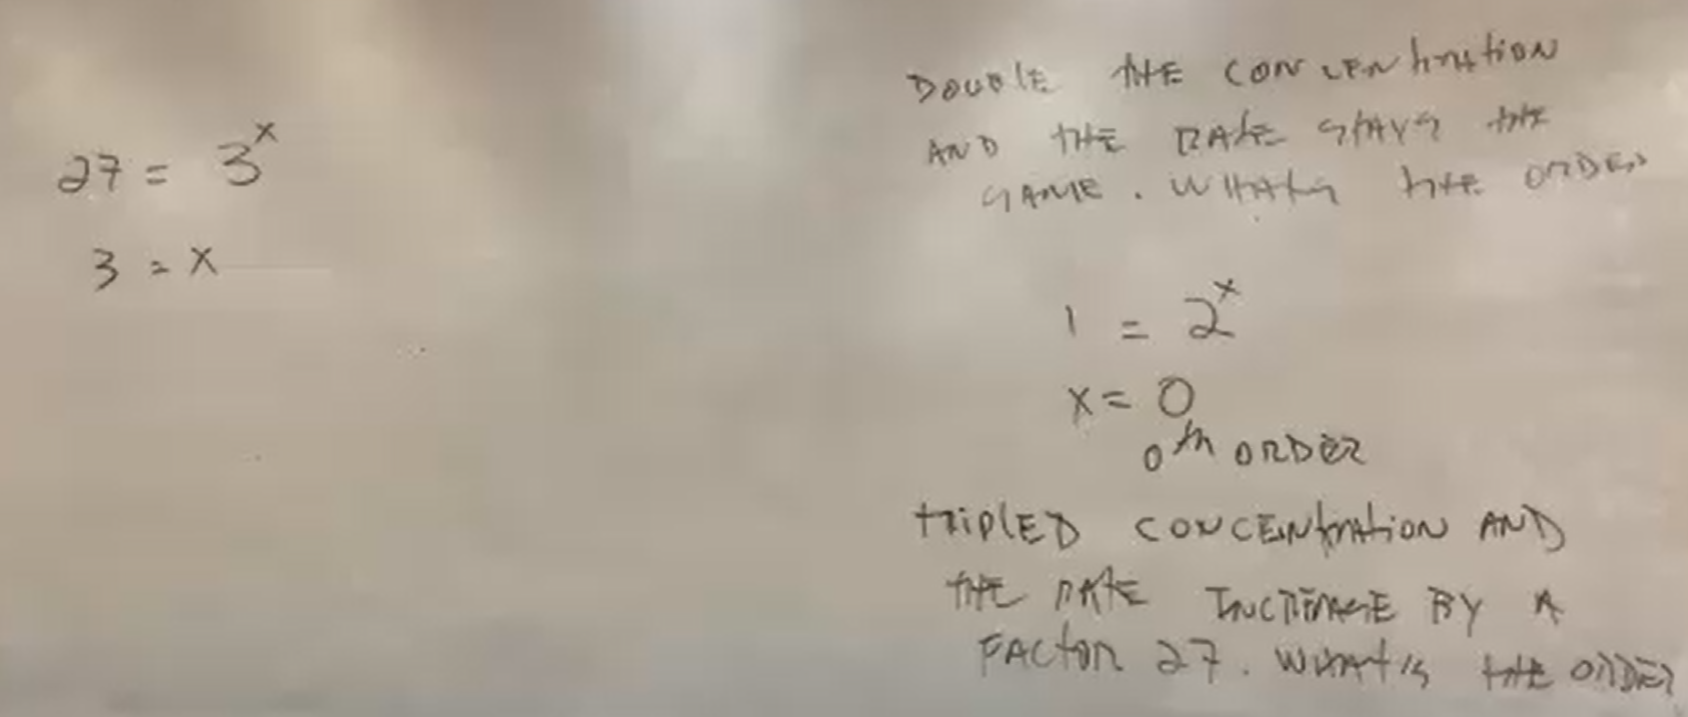 27 = 3^x
3 = x
DOUBLE THE CONCENTRATION
AND THE RATE STAYS THE
SAME. WHAT IS THE ORDER
1 = 2^x
x = 0
0th ORDER
TRIPLED CONCENTRATION AND
THE RATE INCREASE BY A
FACTOR 27. WHAT IS THE ORDER